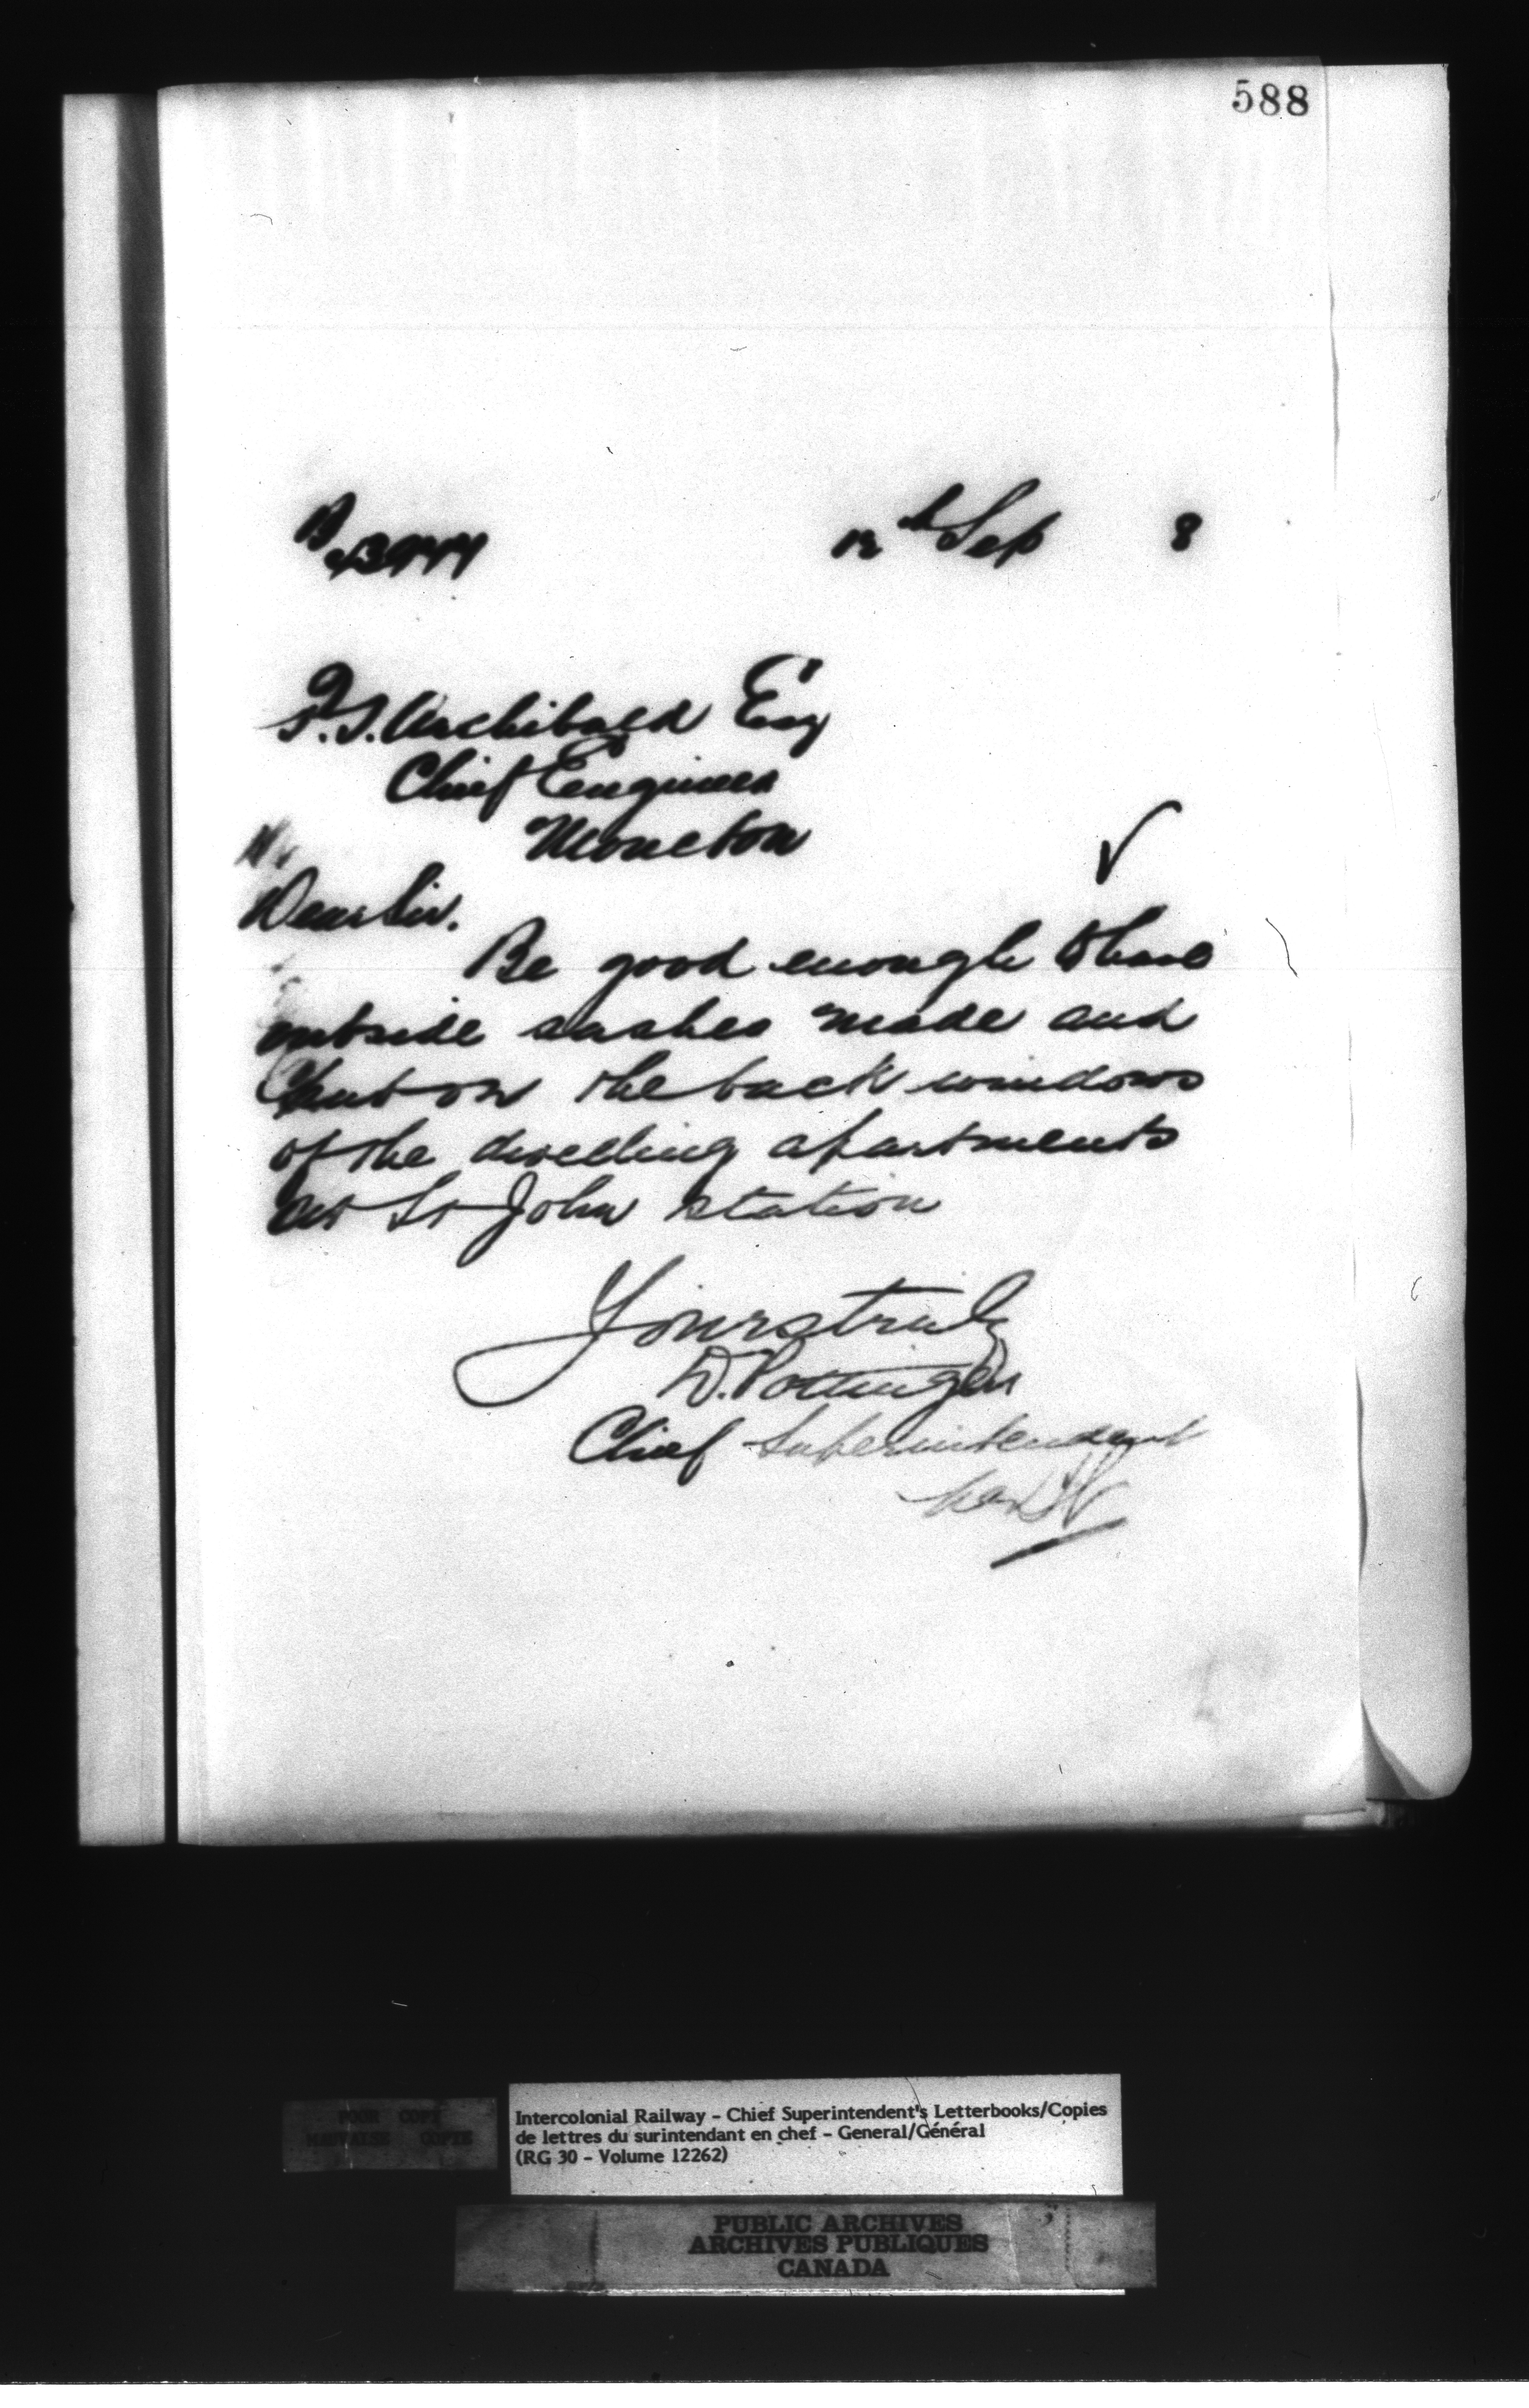 588
12th Sep 8
P.S. Archibald Esq
Chief Engineer
Moncton
Dear Sir.
Be good enough to have
outside sashes made and
put on the back windows
of the dwelling apartments
at St John station
Yours truly
D. Pottinger
Chief Superintendent
POOR COPY
MAUVAISE COPIE
Intercolonial Railway - Chief Superintendent's Letterbooks/Copies
de lettres du surintendant en chef - General/Général
(RG 30 - Volume 12262)
PUBLIC ARCHIVES
ARCHIVES PUBLIQUES
CANADA